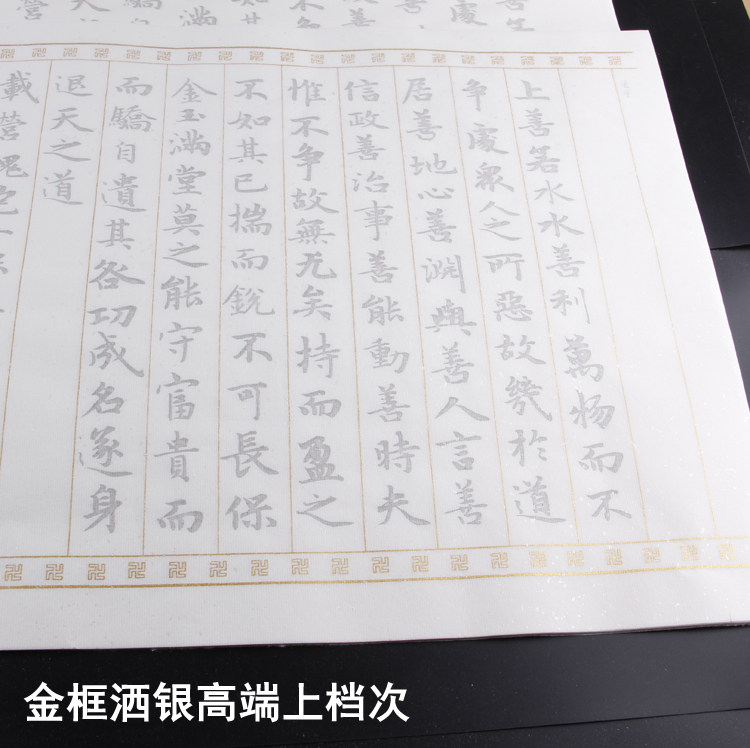 上善若水水善利萬物而不
争處衆人之所惡故幾於道
居善地心善淵與善人言善
信政善治事善能動善時夫
惟不争故無尤矣持而盈之
不如其已揣而銳不可長保
金玉滿堂莫之能守富貴而
而驕自遺其咎功成名遂身
退天之道
載營魄
金框洒银高端上档次